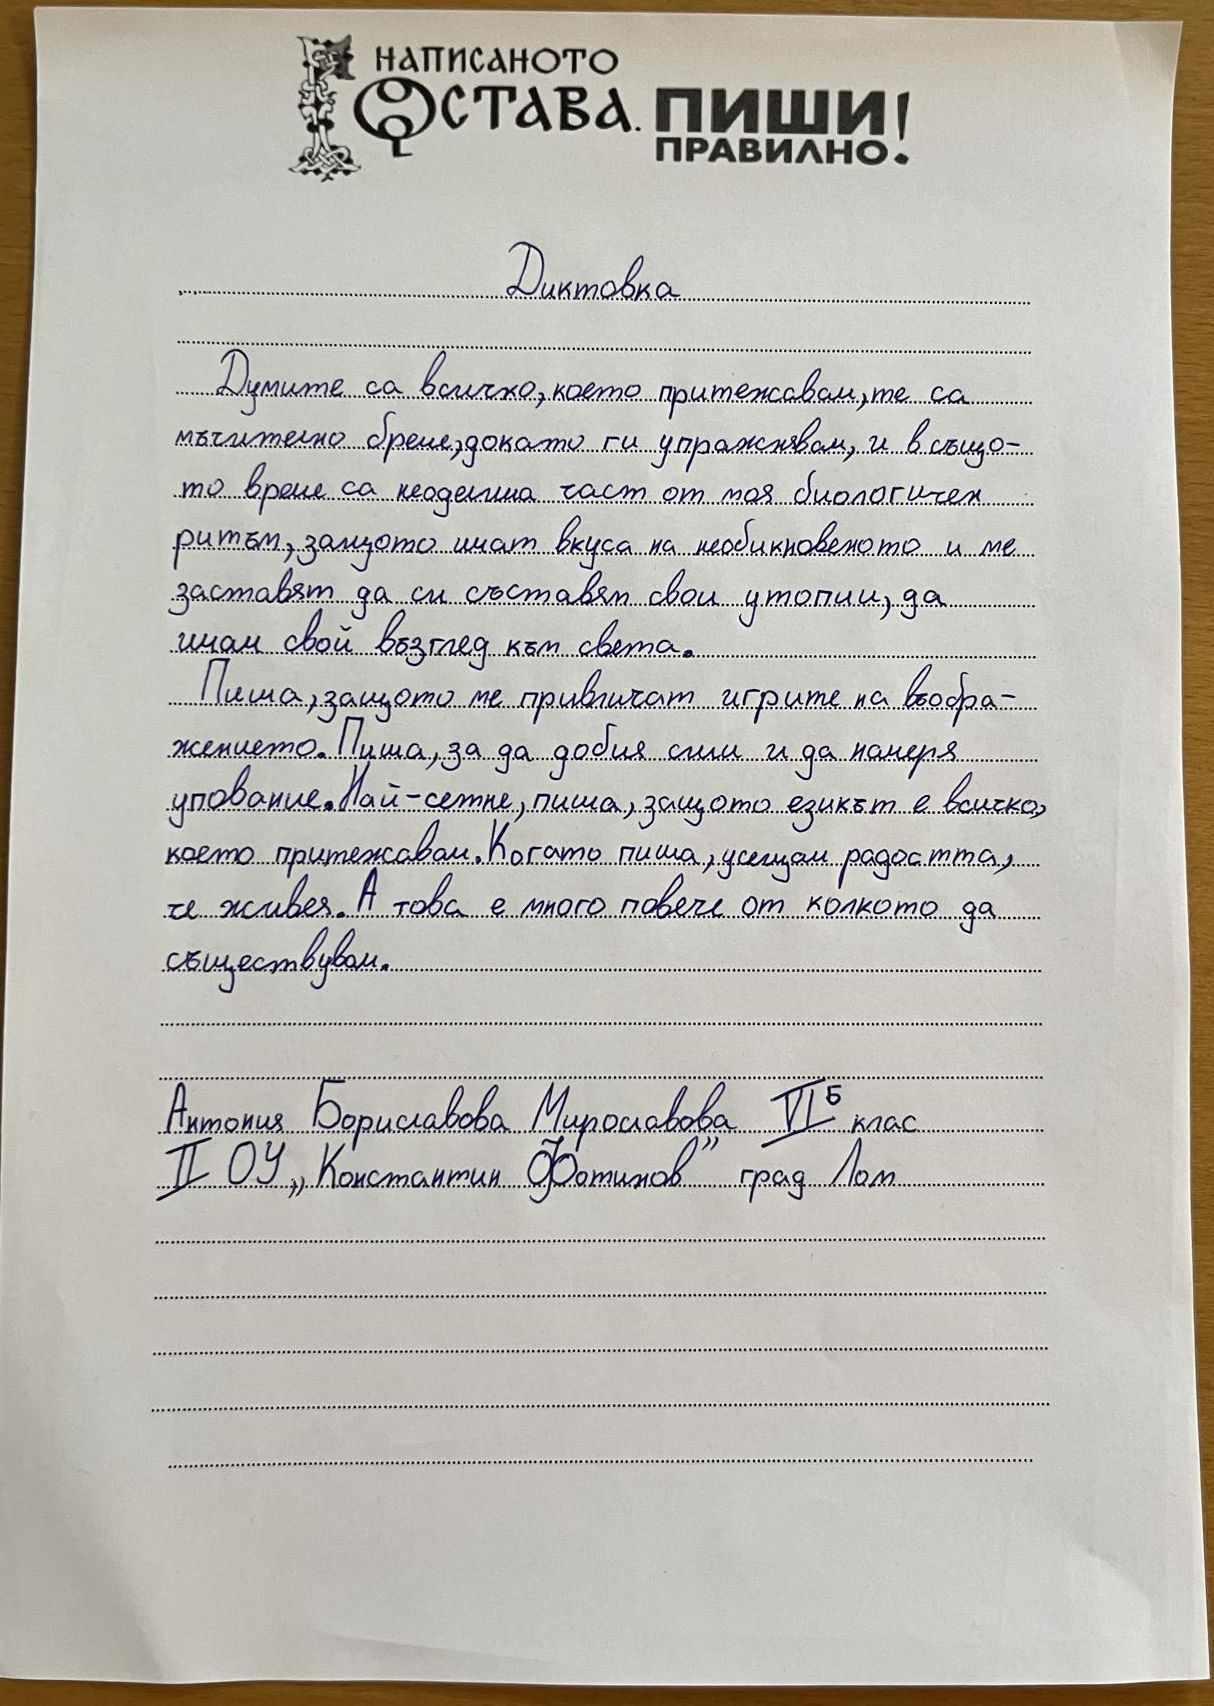 НАПИСАНОТО
ОСТАВА. ПИШИ
ПРАВИЛНО!
Диктовка
Думите са всичко, което притежавам, те са
мъчително бреме, докато ги упражнявам, и в също-
то време са неоделима част от моя биологичен
ритъм, защото имат вкуса на необикновеното и ме
заставят да си съставям свои утопии, да
имам свой възглед към света.
Пиша, защото ме привличат игрите на въобра-
жението. Пиша, за да добия сили и да намеря
упование. Най-сетне, пиша, защото езикът е всичко,
което притежавам. Когато пиша, усещам радостта,
че живея. А това е много повече от колкото да
съществувам.
Антония Бориславова Мирославова VIБ клас
II ОУ „Константин Фотинов" град Лом